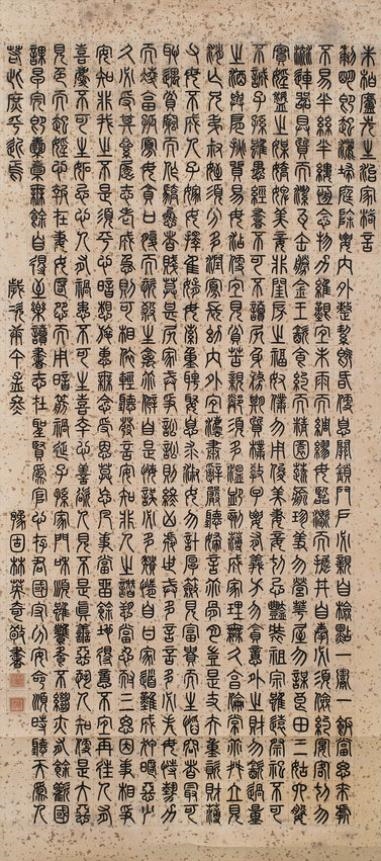 朱柏廬先生治家格言
黎明即起灑掃庭除要內外整潔既昏便息關鎖門戶必親自檢點一粥一飯當思來處
不易半絲半縷恆念物力維艱宜未雨而綢繆毋臨渴而掘井自奉必須儉約宴客切勿
流連器具質而潔瓦缶勝金玉飲食約而精園蔬愈珍羞勿營華屋勿謀良田三姑六婆
實淫盜之媒婢美妾嬌非閨房之福奴僕勿用俊美妻妾切忌艷妝祖宗雖遠祭祀不可
不誠子孫雖愚經書不可不讀居身務期質樸教子要有義方勿貪意外之財勿飲過量
之酒與肩挑貿易毋佔便宜見貧苦親鄰須多溫卹刻薄成家理無久享倫常乖舛立見
消亡兄弟叔姪須分多潤寡長幼內外宜法肅辭嚴聽婦言乖骨肉豈是丈夫重貲財薄
父母不成人子嫁女擇佳婿毋索重聘娶媳求淑女勿計厚奩見富貴而生諂容者最可
恥遇貧窮而作驕態者賤莫甚居家戒爭訟訟則終凶處世戒多言言多必失毋恃勢力
而凌逼孤寡毋貪口腹而恣殺生禽乖僻自是悔誤必多頹惰自甘家道難成狎暱惡少
久必受其累屈志老成急則可相依輕聽發言安知非人之譖愬當忍耐三思因事相爭
安知非我之不是須平心暗想施惠無念受恩莫忘凡事當留餘地得意不宜再往人有
喜慶不可生妒忌心人有禍患不可生喜幸心善欲人見不是真善惡恐人知便是大惡
見色而起淫心報在妻女匿怨而用暗箭禍延子孫家門和順雖饔飧不繼亦有餘歡國
課早完即囊橐無餘自得至樂讀書志在聖賢為官心存君國守分安命順時聽天為人
若此庶乎近焉
歲次甲午孟冬 豫固林英奇敬書